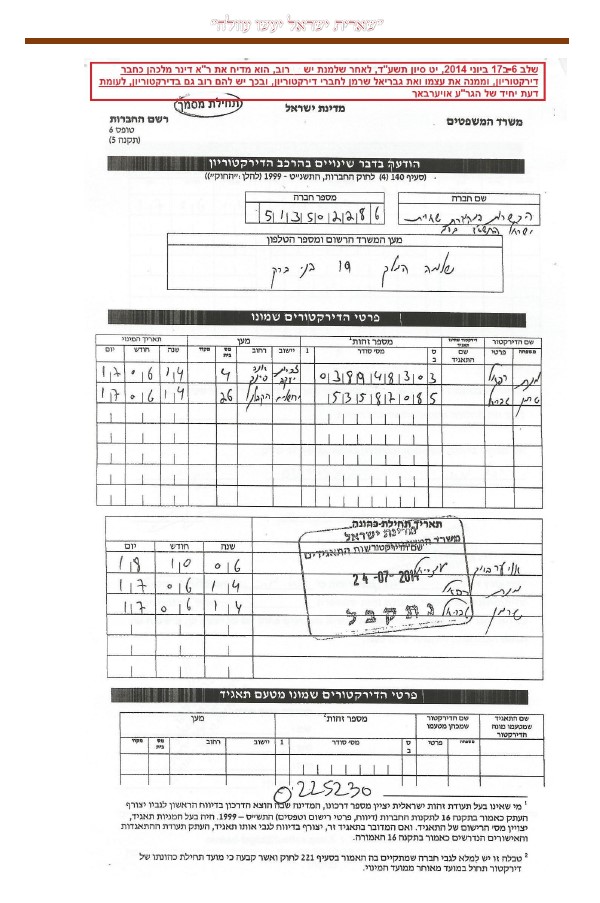 "שארית ישראל יעשו עוולה"
שלב 6-ב17 ביוני 2014, יט סיון תשע"ד, לאחר שלמנת יש רוב, הוא מדיח את ר"א דינר מלכהן כחבר
דירקטוריון, וממנה את עצמו ואת גבריאל שרמן לחברי דירקטוריון, ובכך יש להם רוב גם בדירקטוריון, לעומת
דעת יחיד של הגר"ע אויערבאך
תחילת מסמך
מדינת ישראל
משרד המשפטים
רשם החברות
טופס 6
(תקנה 5)
הודעה בדבר שינויים בהרכב הדירקטוריון
(סעיף 140 (4) לחוק החברות, התשנ"ט - 1999 (להלן: "החוק"))
שם חברה
מספר חברה
513502286
ישראל
מען המשרד הרשום ומספר הטלפון
שלמה המלך 19 בני ברק
פרטי הדירקטורים שמונו
שם הדירקטור
מספר זהות
מען
תאריך המינוי
משפחה פרטי שם התאגיד ס ב מס' סודר 1 יישוב רחוב מס בית מיקוד שנה חודש יום
מנת רפאל 3 03891830 4 14 06 17
שרמן גבריאל 5 15358708 26 14 06 17
תאריך תחילת כהונה
מדינת ישראל
משרד המשפטים
רשות התאגידים
שם הדירקטור
24-07-2014
נתקבל
שנה חודש יום
אויערבוך עזריאל 06 10 18
מנת רפאל 14 06 17
שרמן גבריאל 14 06 17
פרטי הדירקטורים שמונו מטעם תאגיד
שם התאגיד שמטעמו מונה הדירקטור
שם הדירקטור שמכהן מטעמו
מספר זהות
מען
משפחה פרטי ס ב מס' סודר 1 יישוב רחוב מס בית מיקוד
225230
1 מי שאינו בעל תעודת זהות ישראלית יציין מספר דרכונו, המדינה שבה הוצא הדרכון בדיווח הראשון לגביו יצורף
העתק כאמור בתקנה 16 לתקנות החברות (דיווח, פרטי רישום וטפסים) התש"ס - 1999. היה בעל המניות תאגיד,
יצויין מס' הרישום של התאגיד. ואם המדובר בתאגיד זר, יצורף בדיווח לגבי אותו תאגיד, העתק תעודת ההתאגדות
והאישורים הנדרשים כאמור בתקנה 16 האמורה.
2 טבלה זו יש למלא לגבי חברה שמתקיים בה האמור בסעיף 221 לחוק ואשר קבעה כי מועד תחילת כהונתו של
דירקטור תחול במועד מאוחר ממועד המינוי.